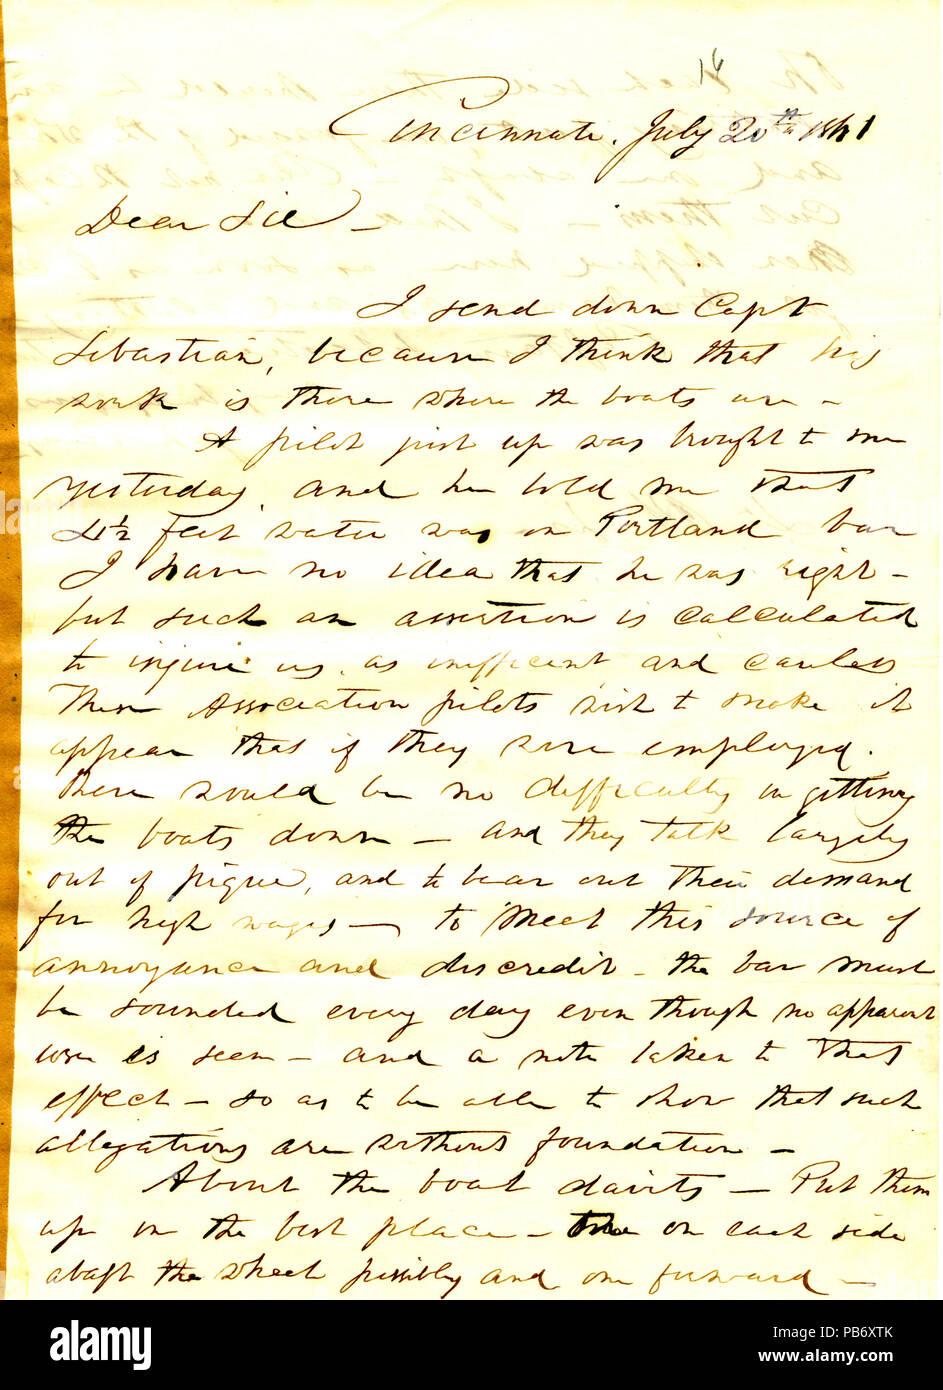 16
Cincinnati, July 20th 1861
Dear Sir –
I send down Capt
Sebastian, because I think that his
work is there where the boats are –
A pilot just up was brought to me
yesterday, and he told me that
4½ feet water was on Portland bar
I have no idea that he was right –
but such an assertion is calculated
to injure us, as inefficient and careless
These Association pilots wish to make it
appear that if they were employed.
there would be no difficulty in getting
the boats down – and they talk largely
out of pique, and to bear out their demand
for high wages – to meet this source of
annoyance and discredit – the bar must
be sounded every day even though no apparent
use is seen – and a note taken to that
effect – so as to be able to show that such
allegations are without foundation –
About the boat davits – Put them
up in the best place – one on each side
abaft the wheel possibly and one forward –
alamy
Image ID: PB6XTK
www.alamy.com